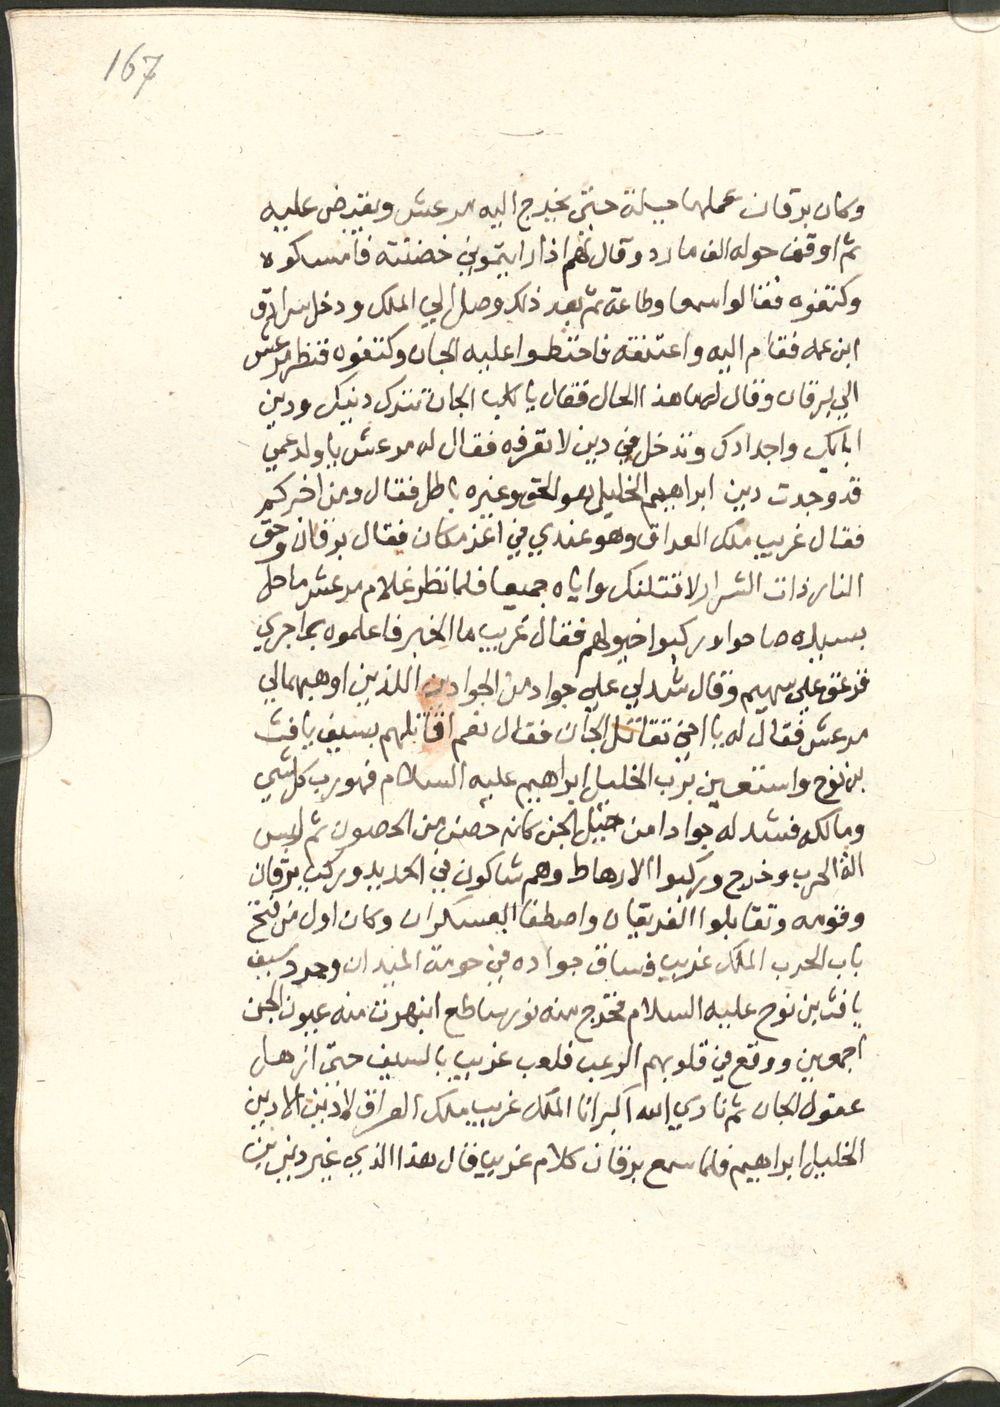 167
وكان برقان عملها حيلة حتى يخرج اليه مرعش ويقبض عليه
ثم اوقف حوله الف مارد وقال لهم اذا رايتموني حضنته فامسكوه
وكتفوه فقالوا سمعا وطاعة ثم بعد ذلك وصل الي الملك ودخل سرادق
ابن عمه فقام اليه واعتنقه فاحتطوا عليه الجان وكتفوه فنظر مرعش
الي برقان وقال له ما هذا الحال فقال يا كلب الجان تترك دينك ودين
ابايك واجدادك وتدخل في دين لا تعرفه فقال له مرعش يا ولد عمي
قد وجدت دين ابراهيم الخليل هو الحق وغيره باطل فقال ومن اخبركم
فقال غريب ملك العراق وهو عندي في اعز مكان فقال برقان وحق
النار ذات الشرار لاقتلنك واياه جميعا فلما نظر غلام مرعش ما حل
بسيده صاحوا وركبوا خيولهم فقال غريب ما الخبر فاعلموه بما جري
فزعق علي سهيم وقال شد لي علي جواد من الجوادين اللذين اوهبهما لي
مرعش فقال له يا اخي تقاتل الجان فقال نعم اقاتلهم بسيف يافث
بن نوح واستعين برب الخليل ابراهيم عليه السلام فهو رب كل شي
ومالكه فشد له جوادا من خيل الجن كانه حصن من الحصون ثم لبس
الة الحرب وخرج وركبوا الارهاط وهم شاكون في الحديد وركب برقان
وقومه وتقابلوا الفريقان واصطفا العسكران وكان اول من فتح
باب الحرب الملك غريب فساق جواده في حومة الميدان وجرد سيف
يافث بن نوح عليه السلام فخرج منه نور ساطع انبهرت منه عيون الجن
اجمعين ووقع في قلوبهم الرعب فلعب غريب بالسيف حتى اذهل
عقول الجان ثم نادي الله اكبر انا الملك غريب ملك العراق لا دين الا دين
الخليل ابراهيم فلما سمع برقان كلام غريب قال هذا الذي غير دين بن